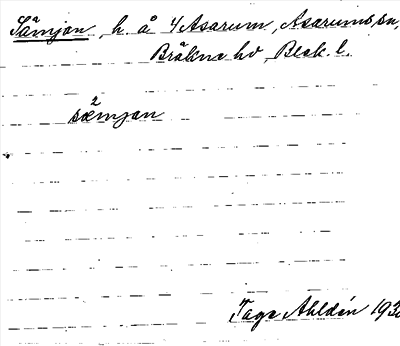 Sämjan, h. å 4/ Asarum, Asarums sn,
Bräkne hd, Blek. l.
2
sæmjan
Tage Ahldén 193